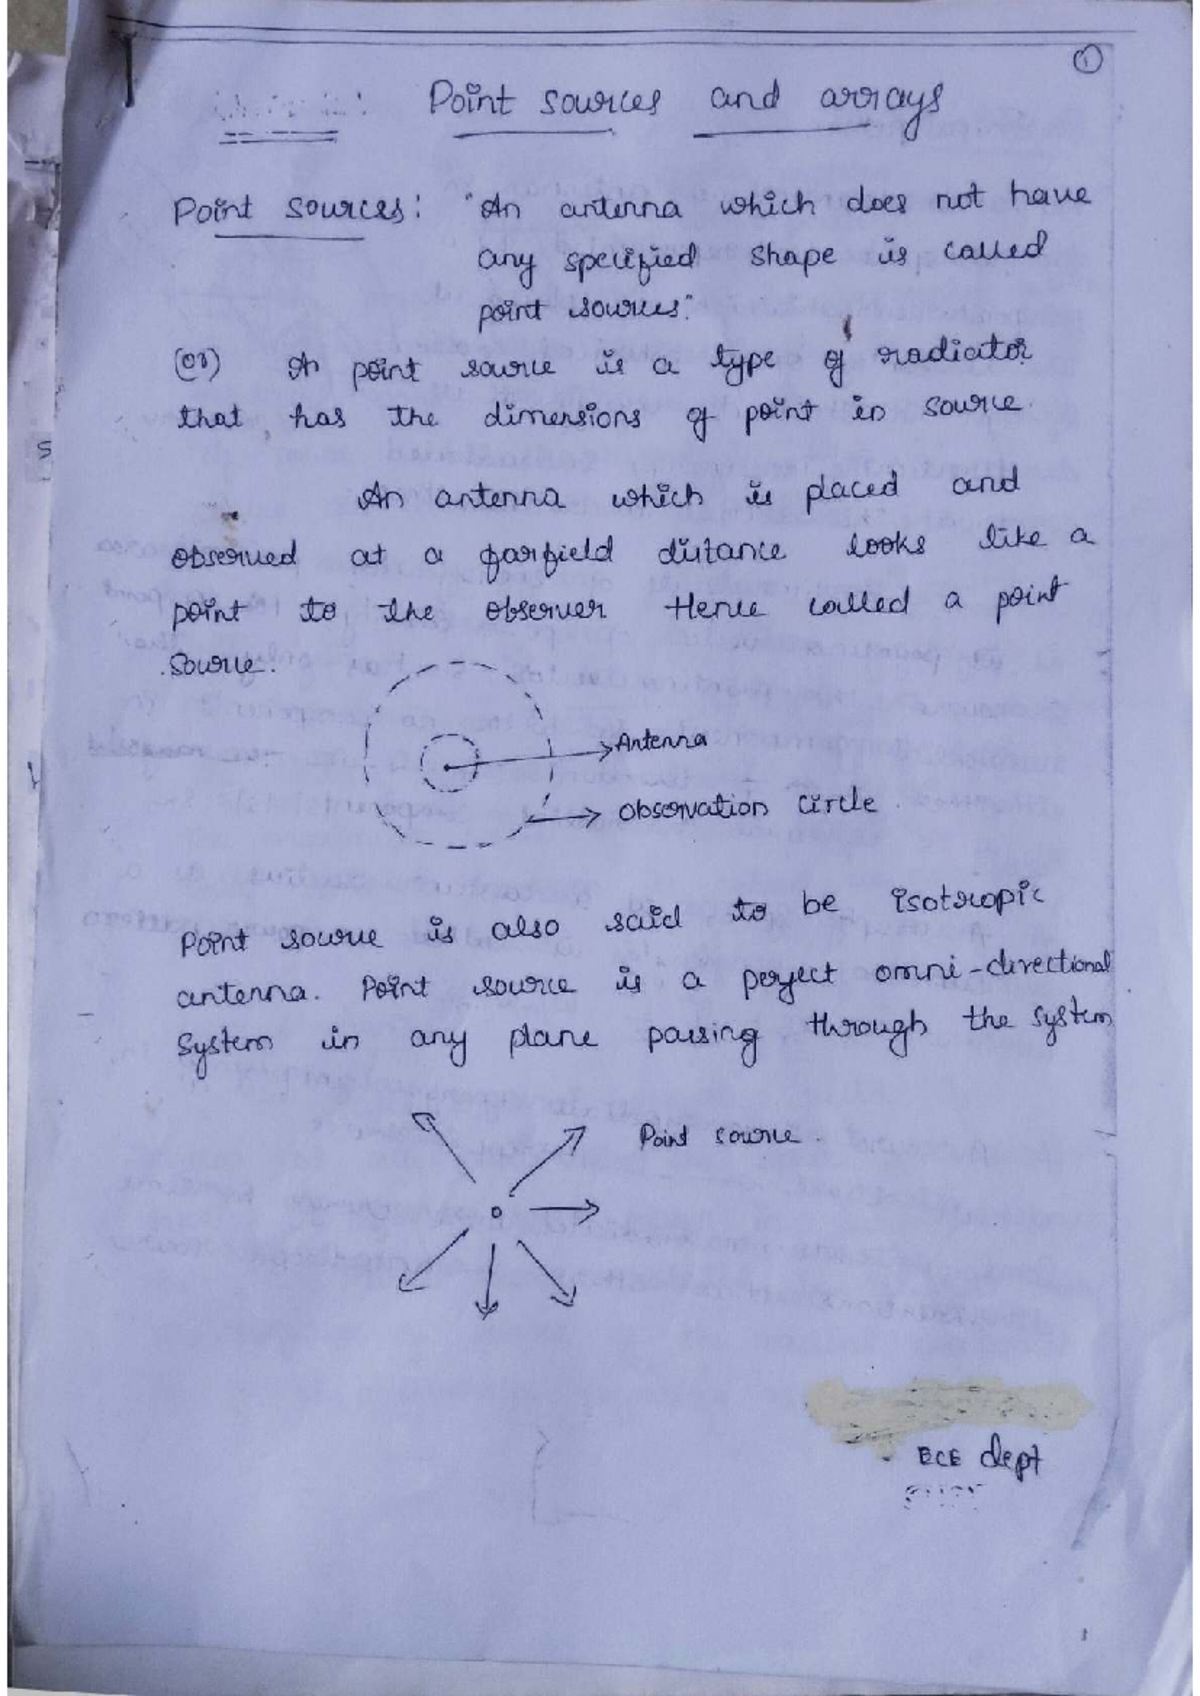 1
Point sources and arrays
Point sources: "An antenna which does not have
any specified shape is called
point sources."
(or) A point source is a type of radiator
that has the dimensions of point in source.
An antenna which is placed and
observed at a farfield distance looks like a
point to the observer Hence called a point
source.
Antenna
observation circle.
Point source is also said to be isotropic
antenna. Point source is a perfect omni-directional
system in any plane passing through the system
Point source.
ECE dept
1